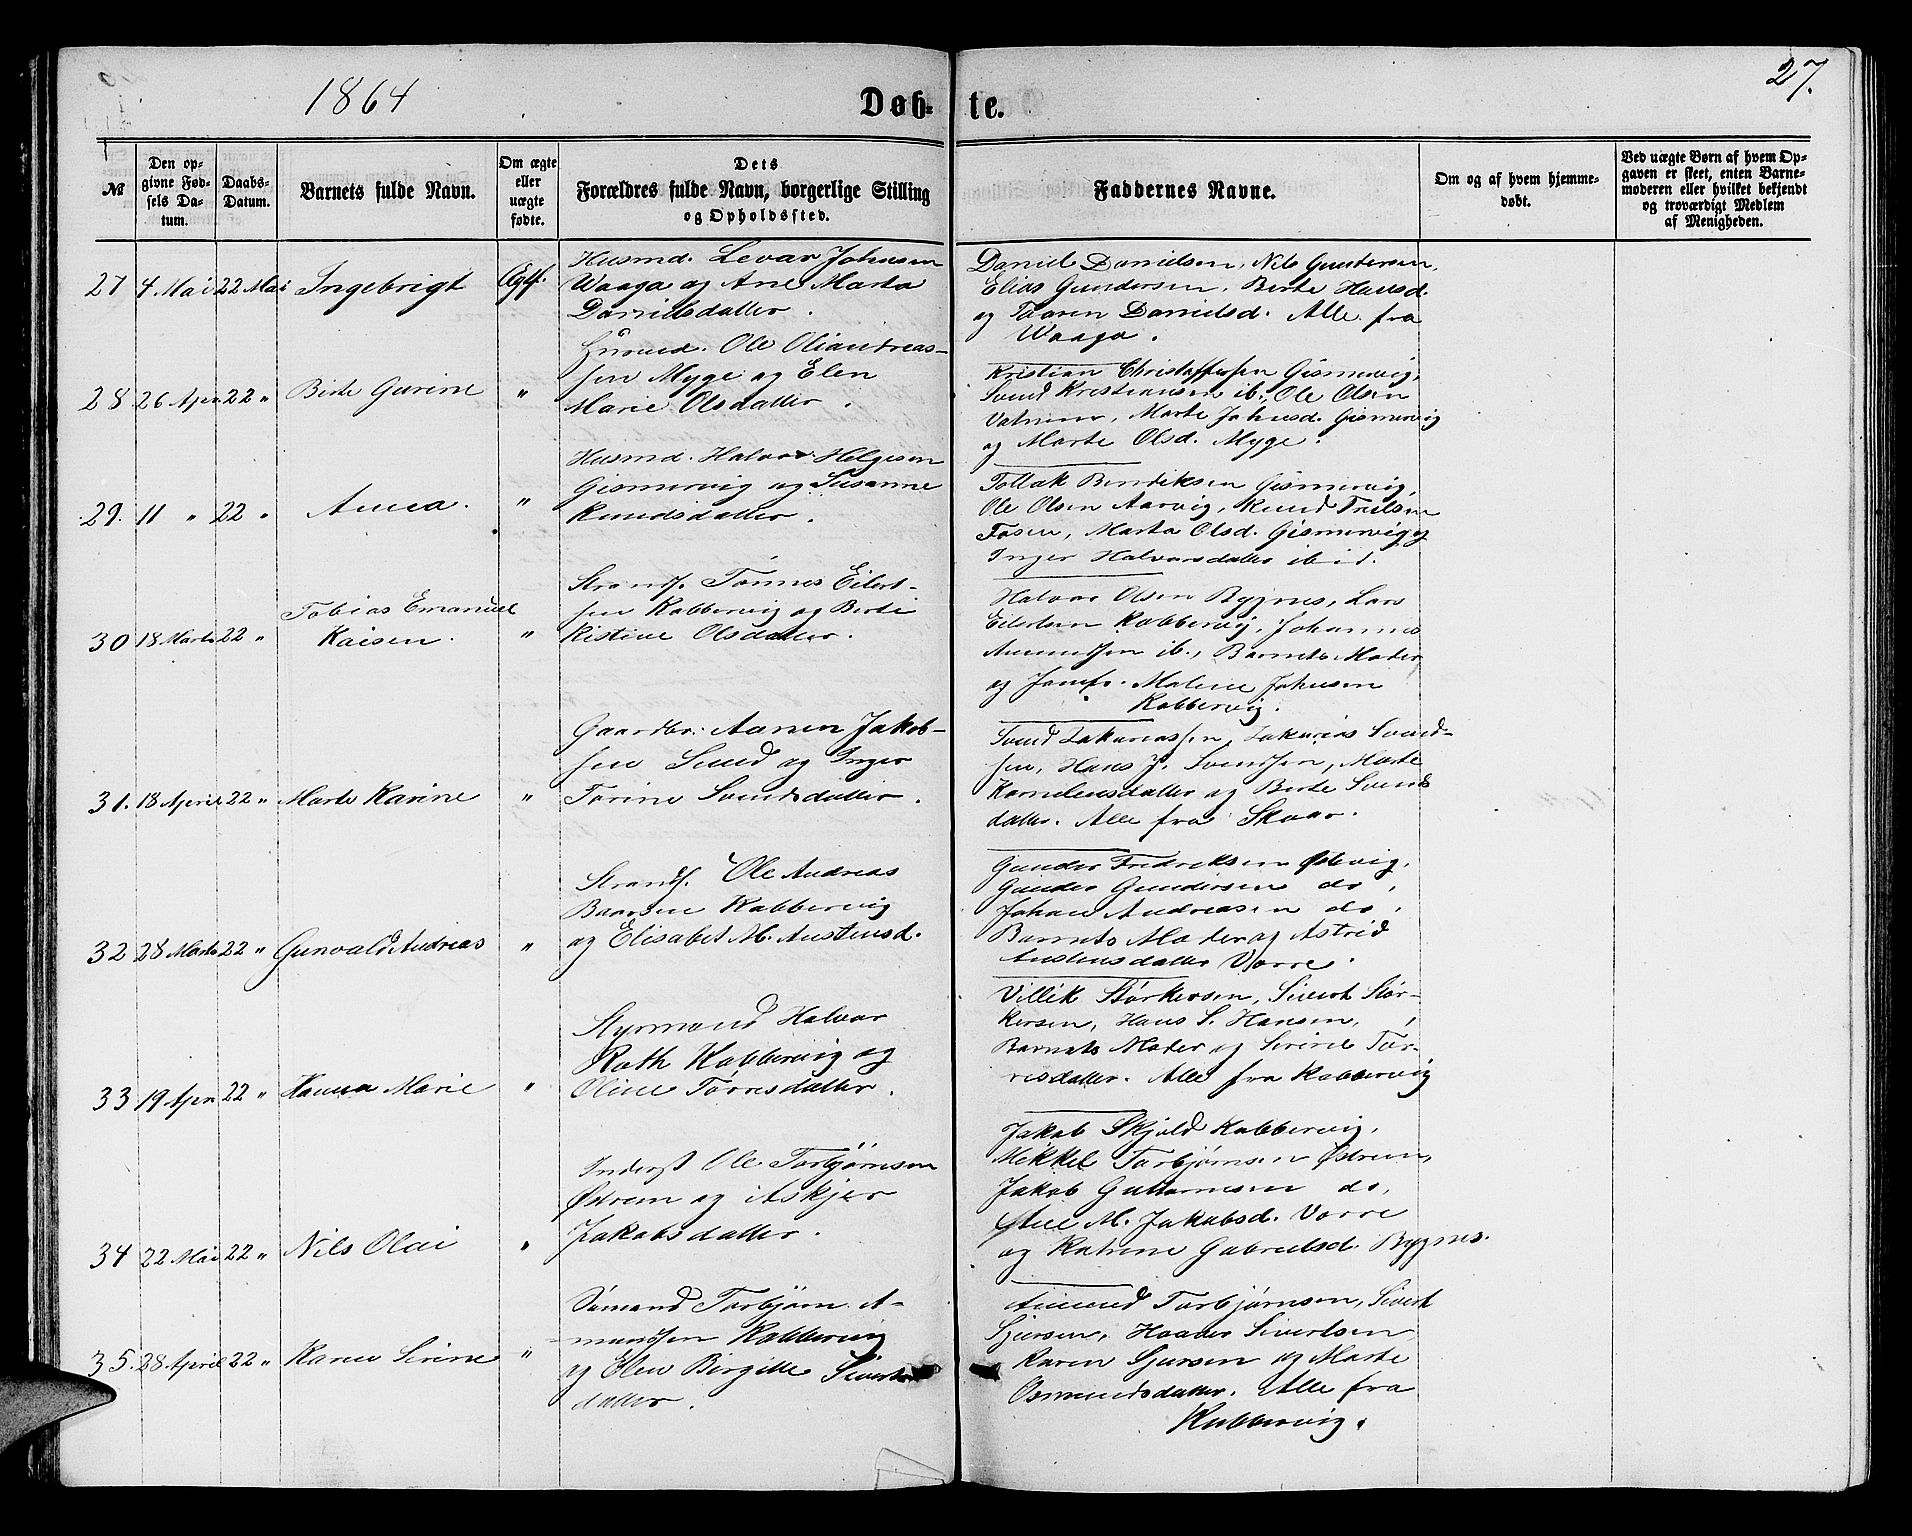 1864
Døb-
te.
27.
№
Den op-
givne Fød-
sels Da-
tum.
Daabs-
Datum.
Barnets fulde Navn.
Om ægte
eller
uægte
fødte.
Dets
Forældres fulde Navn, borgerlige Stilling
og Opholdssted.
Faddernes Navne.
Om og af hvem hjemme-
døbt.
Ved uægte Børn af hvem Op-
gaven er skeet, enten Barne-
moderen eller hvilket bekjendt
og troværdigt Medlem
af Menigheden.
27 4 Mai 22 Mai Ingebrigt Ægtf.
Husmd. Levar Johnsen
Waaga og Ane Marta
Danielsdatter.
Daniel Danielsen, Nils Gundersen,
Elias Gundersen, Berte Hansd.
og Taaren Danielsd. Alle fra
Waaga.
28 26 Apr 22 " Berte Gurine "
Husmd. Ole Oliandreas-
sen Myge og Elen
Marie Olsdatter.
Kristian Christoffersen Gismervig,
Svend Kristiansen ib., Ole Olsen
Marte Johnsd. Gismervig
og Marte Olsd. Myge.
29. 11 " 22 " Anna. "
Husmd. Halvor Helgesen
Gismervig og Susanne
Knudsdatter.
Tollak Bendiksen Gismervig,
Ole Olsen Aarvig, Knud
Fosen, Marta Olsd. Gismervig og
Inger Halvorsdatter ibid.
30 18 Marts 22 " Tobias Emanuel
Kaisen. "
Strands. Tönnes Eilert-
sen Kobbervig og Berte
Kistine Olsdatter.
Halvor Olsen Bygnes, Lars
Eilertsen Kobbervig, Johannes
Amundsen ib., Barnets Moder
og Jomfr. Maline Johnsen
Kobbervig.
31. 18 April 22 " Marte Karine "
Gaardbr. Aanen Jakob-
sen Sund og Inger
Torine Svendsdatter.
Svend Zakariassen, Zakarias Svend-
sen, Hans J. Svendsen, Marte
Korneliusdatter og Berte Svends
datter. Alle fra Skaar.
32 28 Marts 22 " Gunvald Andreas "
Strands. Ole Andreas
Baarsen Kobbervig
og Elisabet M. Austensd.
Gunder Fredriksen
Gunder Gundersen do,
Johan Andreasen do,
Barnets Moder og Astrid
Austensdatter Vorre.
33 19 Apr 22 " Hanna Marie "
Styrmand Halvor
Roth Kobbervig og
Oline Tørresdatter.
Villik Størkersen, Sivert Stør-
kersen, Hans S. Hansen,
Barnets Moder og Serine Tør-
resdatter. Alle fra Kobbervig
34 22 Mai 22 " Nils Olai "
Inderst Ole Torbjørnsen
Østrem og Askjer
Jakobsdatter.
Jakob Skjold Kobbervig,
Mikkel Torbjørnsen Østrem,
Jakob Guttormsen do,
M. Jakobsd. Vorre
og Katrine Gabrielsd. Bygnes.
35. 28 April 22 " Karen Serine "
Sømand Torbjørn A-
mundsen Kobbervig
og Elen Birgitte Siverts
datter.
Amund Torbjørnsen, Sivert
Sjursen, Haaver Sivertsen
Karen Sjursen og Marte
Osmundsdatter. Alle fra
Kobbervig.